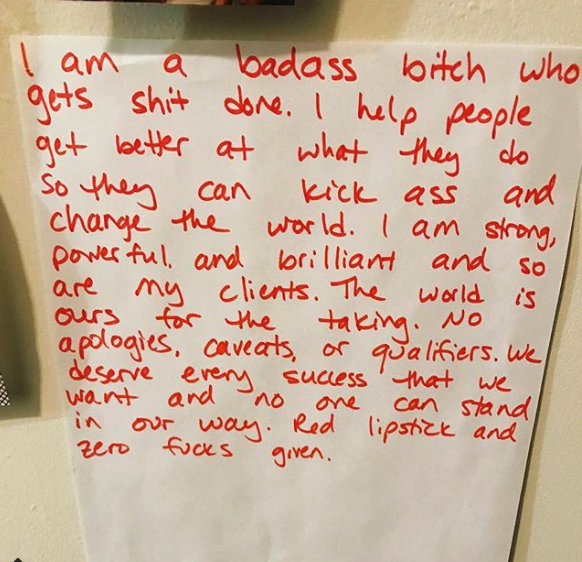 I am a badass bitch who
gets shit done. I help people
get better at what they do
so they can kick ass and
change the world. I am strong,
powerful. and brilliant and so
are my clients. The world is
ours for the taking. No
apologies, caveats, or qualifiers. We
deserve every success that we
want and no one can stand
in our way. Red lipstick and
zero fucks given.